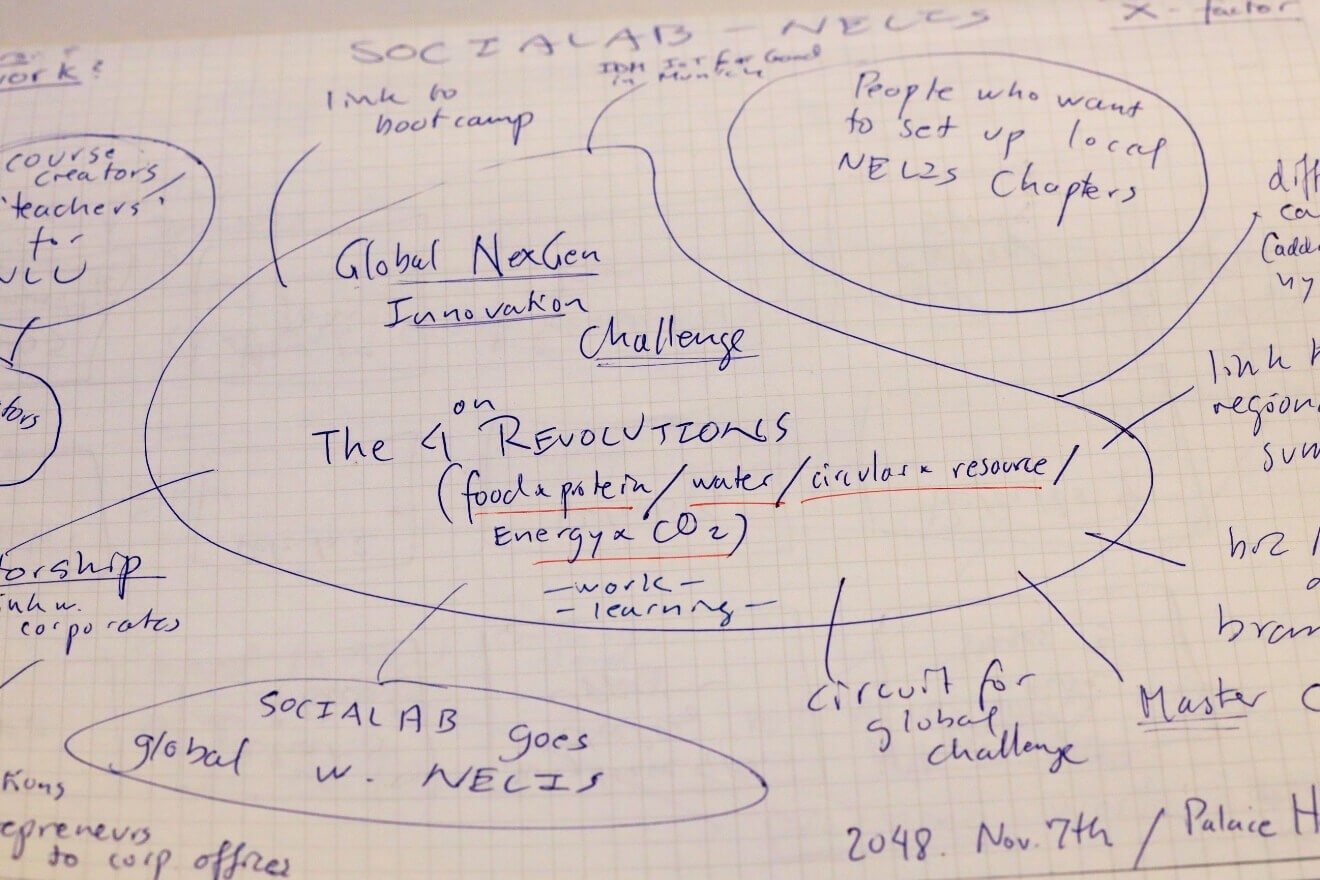 SOCIALAB - NELIS
X-factor
work?
IBM IoT For Good
in Munich
link to
bootcamp
People who want
to set up local
NELIS Chapters
course
creators/
'teachers'
for
Global NexGen
Innovation
Challenge
on
The 4 REVOLUTIONS
(food & protein/water/circular & resource/
Energy & CO2)
-work-
-learning-
link
region
orship
ink w.
corporates
SOCIALAB goes
global w. NELIS
circuit for
global
challenge
Master C
epreneurs
to corp offices
2048. Nov. 7th / Palace H